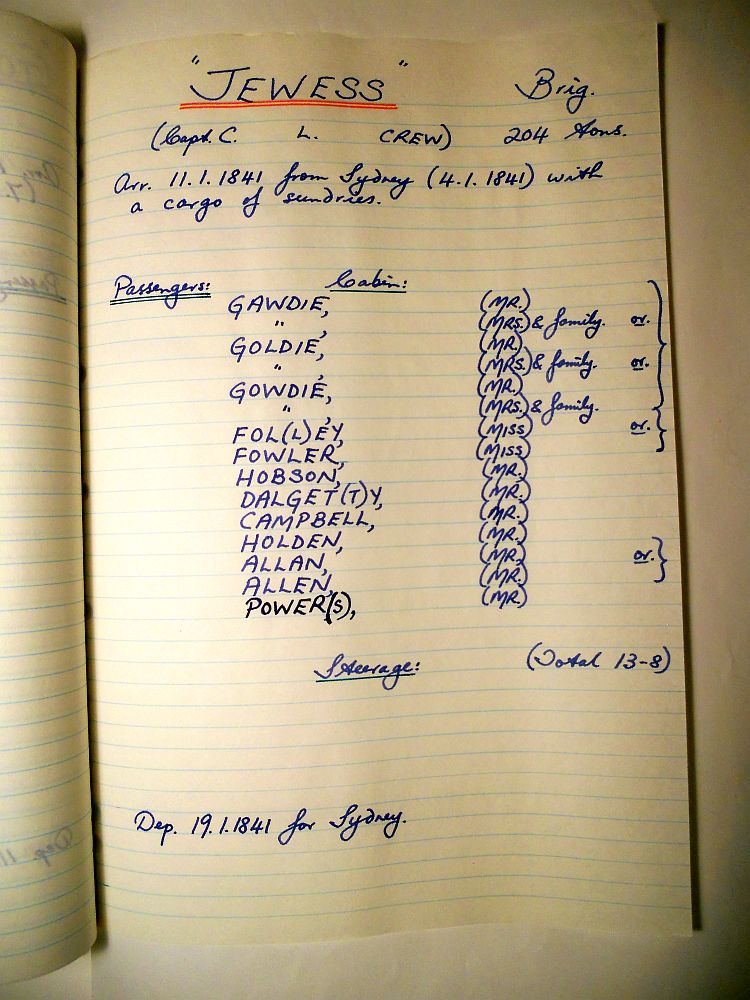 "JEWESS" Brig.
(Capt. C. L. CREW) 204 tons.
Arr. 11.1.1841 from Sydney (4.1.1841) with
a cargo of sundries.
Passengers: Cabin:
GAWDIE, (MR.)
" , (MRS.) & family. or.
GOLDIE, (MR.)
" , (MRS.) & family. or.
GOWDIE, (MR.)
" , (MRS.) & family.
FOL(L)EY, (MISS) or.
FOWLER, (MISS)
HOBSON, (MR.)
DALGET(T)Y, (MR.)
CAMPBELL, (MR.)
HOLDEN, (MR.)
ALLAN, (MR.) or.
ALLEN, (MR.)
POWER(S), (MR.)
Steerage: (Total 13-8)
Dep. 19.1.1841 for Sydney.